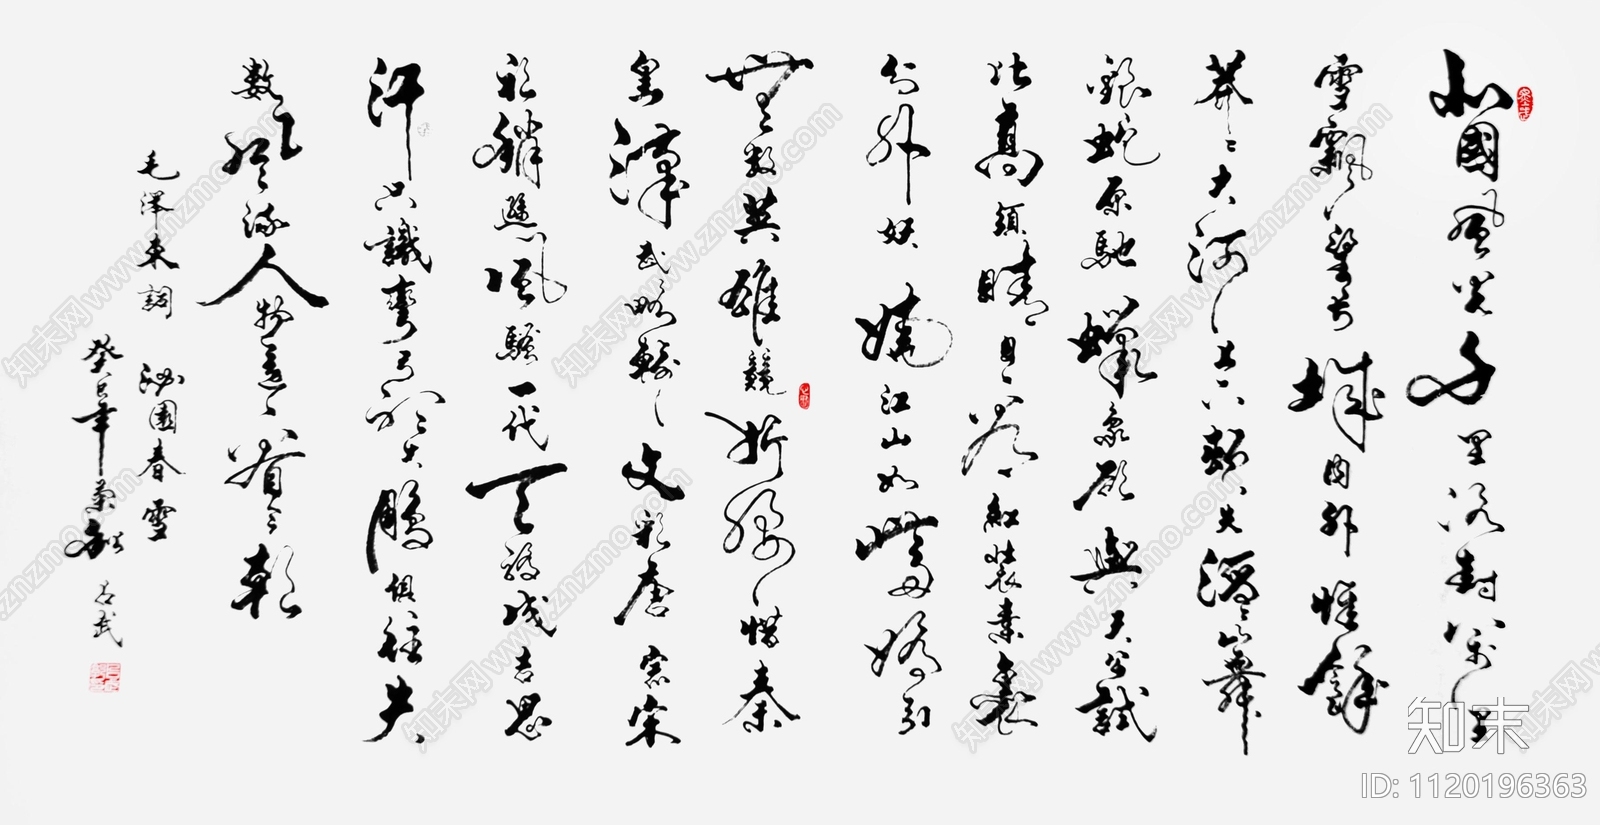 北國風光千里冰封萬里
雪飄望長城內外惟餘
莽々大河上下頓失滔々山舞
銀蛇原馳蠟象欲與天公試
比高須晴日看紅裝素裹
分外妖嬈江山如此多嬌引
無數英雄競折腰惜秦
皇漢武略輸文彩唐宗宋
祖稍遜風騷一代天驕成吉思
汗只識彎弓射大鵰俱往矣
數風流人物還看今朝
毛澤東詞 沁園春雪
癸巳年 呂武
知末
ID: 1120196363
知末网www.znzmo.com